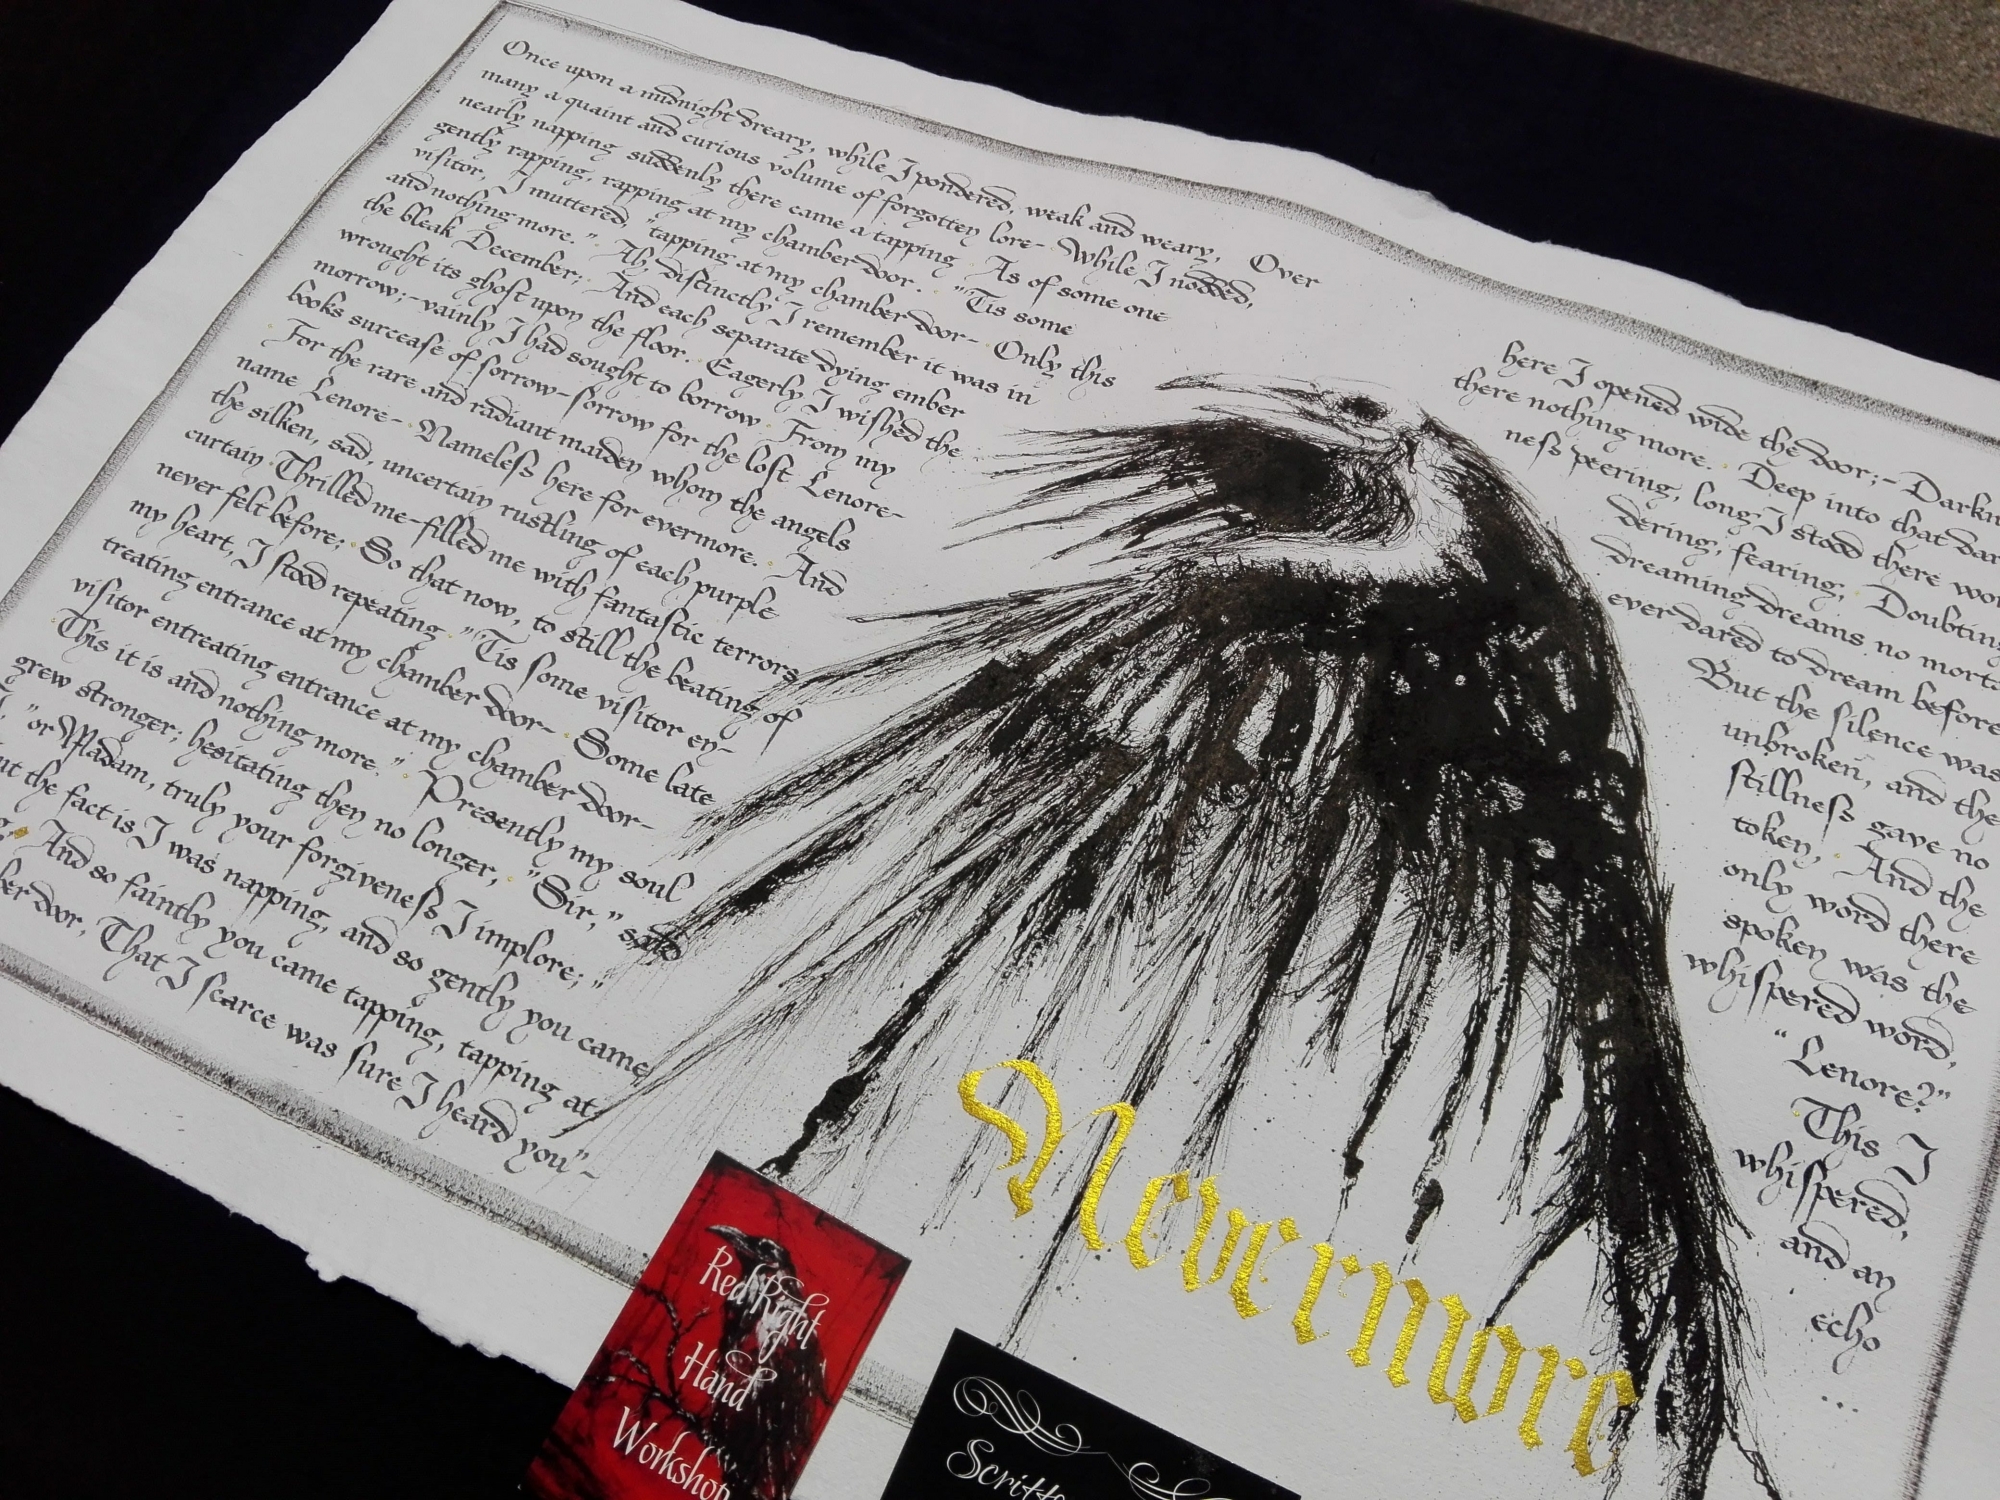 Once upon a midnight dreary, while I pondered, weak and weary, Over
many a quaint and curious volume of forgotten lore- While I nodded,
nearly napping suddenly there came a tapping As of some one
gently rapping, rapping at my chamber door. "'Tis some
visitor, I muttered, "tapping at my chamber door- Only this
and nothing more." Ah, distinctly I remember it was in
the bleak December; And each separate dying ember
wrought its ghost upon the floor. Eagerly I wished the
morrow;-vainly I had sought to borrow From my
books surcease of sorrow-sorrow for the lost Lenore-
For the rare and radiant maiden whom the angels
name Lenore- Nameless here for evermore. And
the silken, sad, uncertain rustling of each purple
curtain Thrilled me-filled me with fantastic terrors
never felt before; So that now, to still the beating of
my heart, I stood repeating "'Tis some visitor en-
treating entrance at my chamber door- Some late
visitor entreating entrance at my chamber door-
This it is and nothing more." Presently my soul
grew stronger; hesitating then no longer, "Sir," said
"or Madam, truly your forgiveness I implore;"
the fact is I was napping, and so gently you came
And so faintly you came tapping, tapping at
door, That I scarce was sure I heard you"-
here I opened wide the door;- Darkn
there nothing more. Deep into that dar
ness peering, long I stood there won
dering, fearing, Doubting
dreaming dreams no morta
ever dared to dream before
But the silence was
unbroken, and the
stillness gave no
token, And the
only word there
spoken was the
whispered word,
"Lenore?"
This I
whispered,
and an
echo
...
Nevermore
Red Right
Hand
Workshop
Scritto